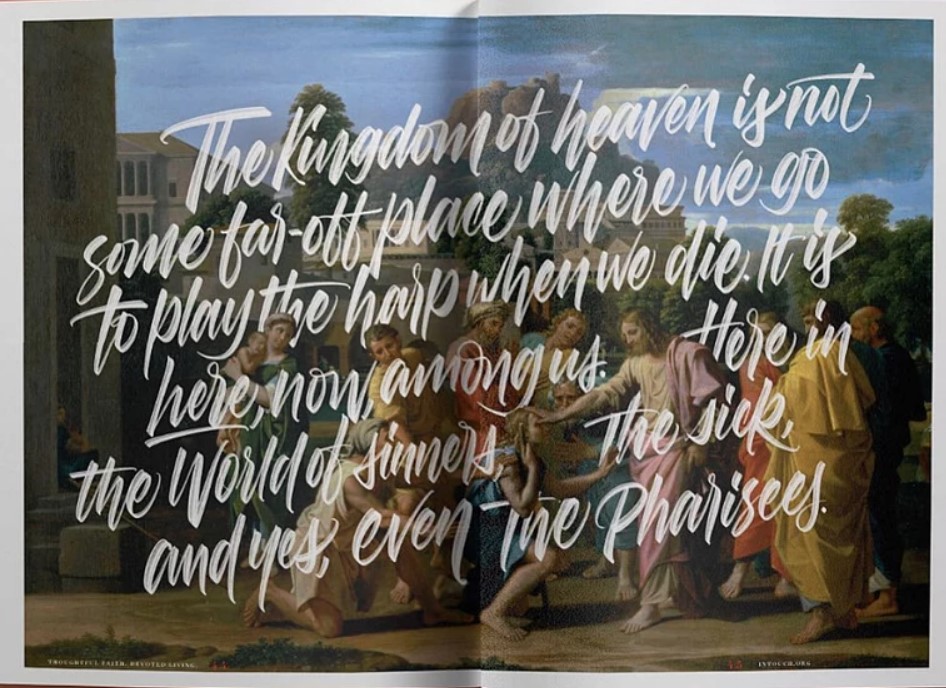 The Kingdom of heaven is not
some far-off place where we go
to play the harp when we die. It is
here, now, among us. Here in
the World of sinners, The sick,
and yes, even The Pharisees.
THOUGHTFUL FAITH. DEVOTED LIVING.
INTOUCH.ORG